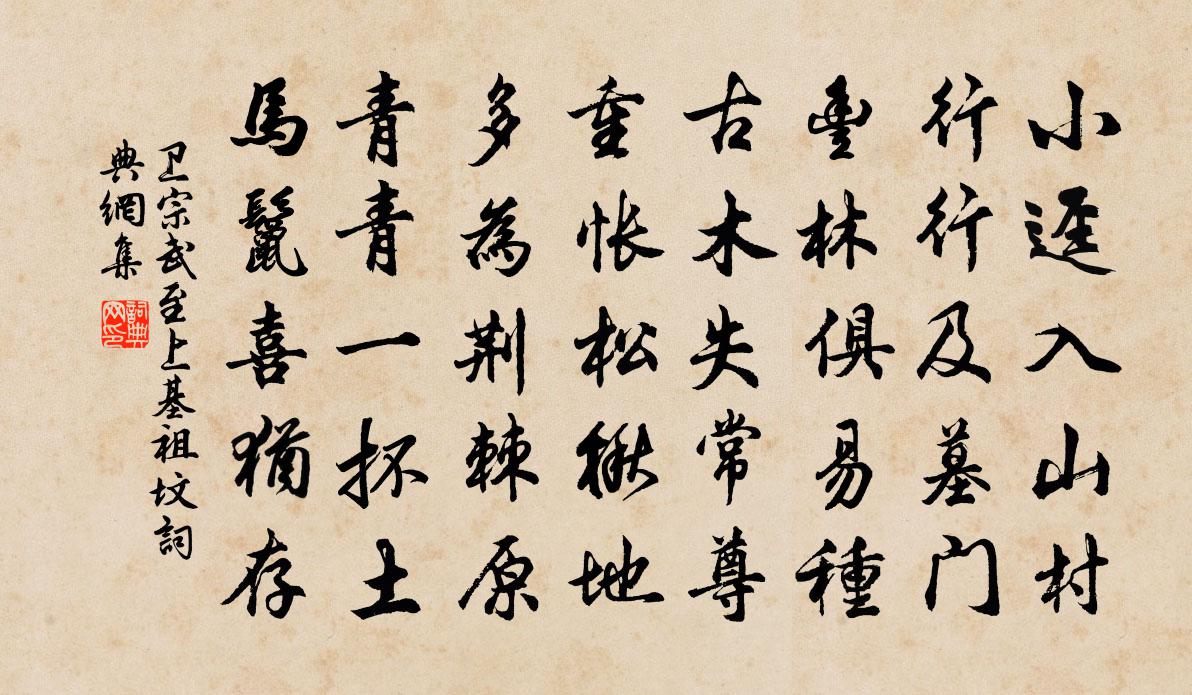 小逕入山村
行行及墓门
豊林俱易種
古木失常尊
重怅松楸地
多為荆棘原
青青一抔土
馬鬣喜猶存
卫宗武至上基祖坟詞
典網集
詞典
网印